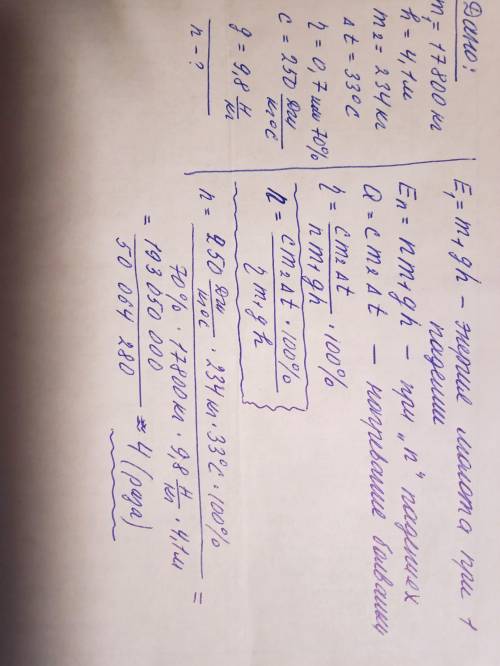 Дано:
m₁ = 17800 кг
h = 4,1 м
m₂ = 234 кг
Δt = 33°C
η = 0,7 или 70%
c = 250 Дж/кг°C
g = 9,8 Н/кг
n - ?
E₁ = m₁gh – энергия молота при 1
падении
Eₙ = n m₁gh – при „n“ падениях
Q = c m₂ Δt – нагревание болванки
η = c m₂ Δt / n m₁gh · 100%
n = c m₂ Δt · 100% / η m₁gh
n = 250 Дж/кг°C · 234 кг · 33°C · 100% / 70% · 17800 кг · 9,8 Н/кг · 4,1 м =
= 193 050 000 / 50 064 280 ≈ 4 (раза)